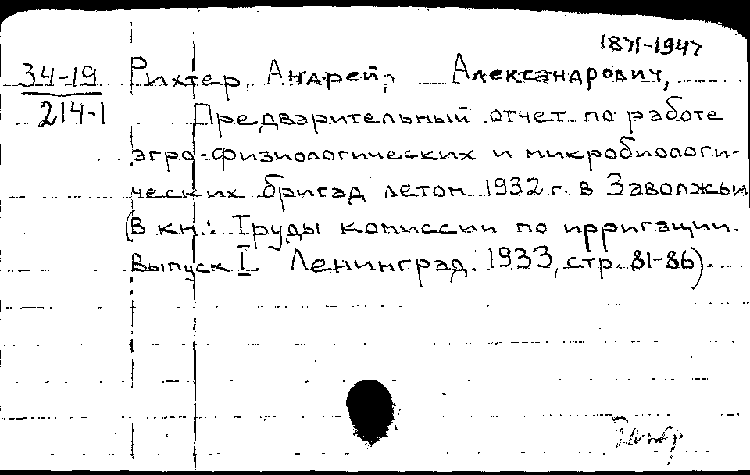 1871-1947
34-19 Рихтер, Андрей, Александрович,
214-1 Предварительный отчет по работе
агро-физиологических и микробиологи-
ческих бригад летом 1932 г. в Заволжьи
(В кн.: Труды комиссии по ирригации.
Выпуск I Ленинград. 1933, стр. 81-86).